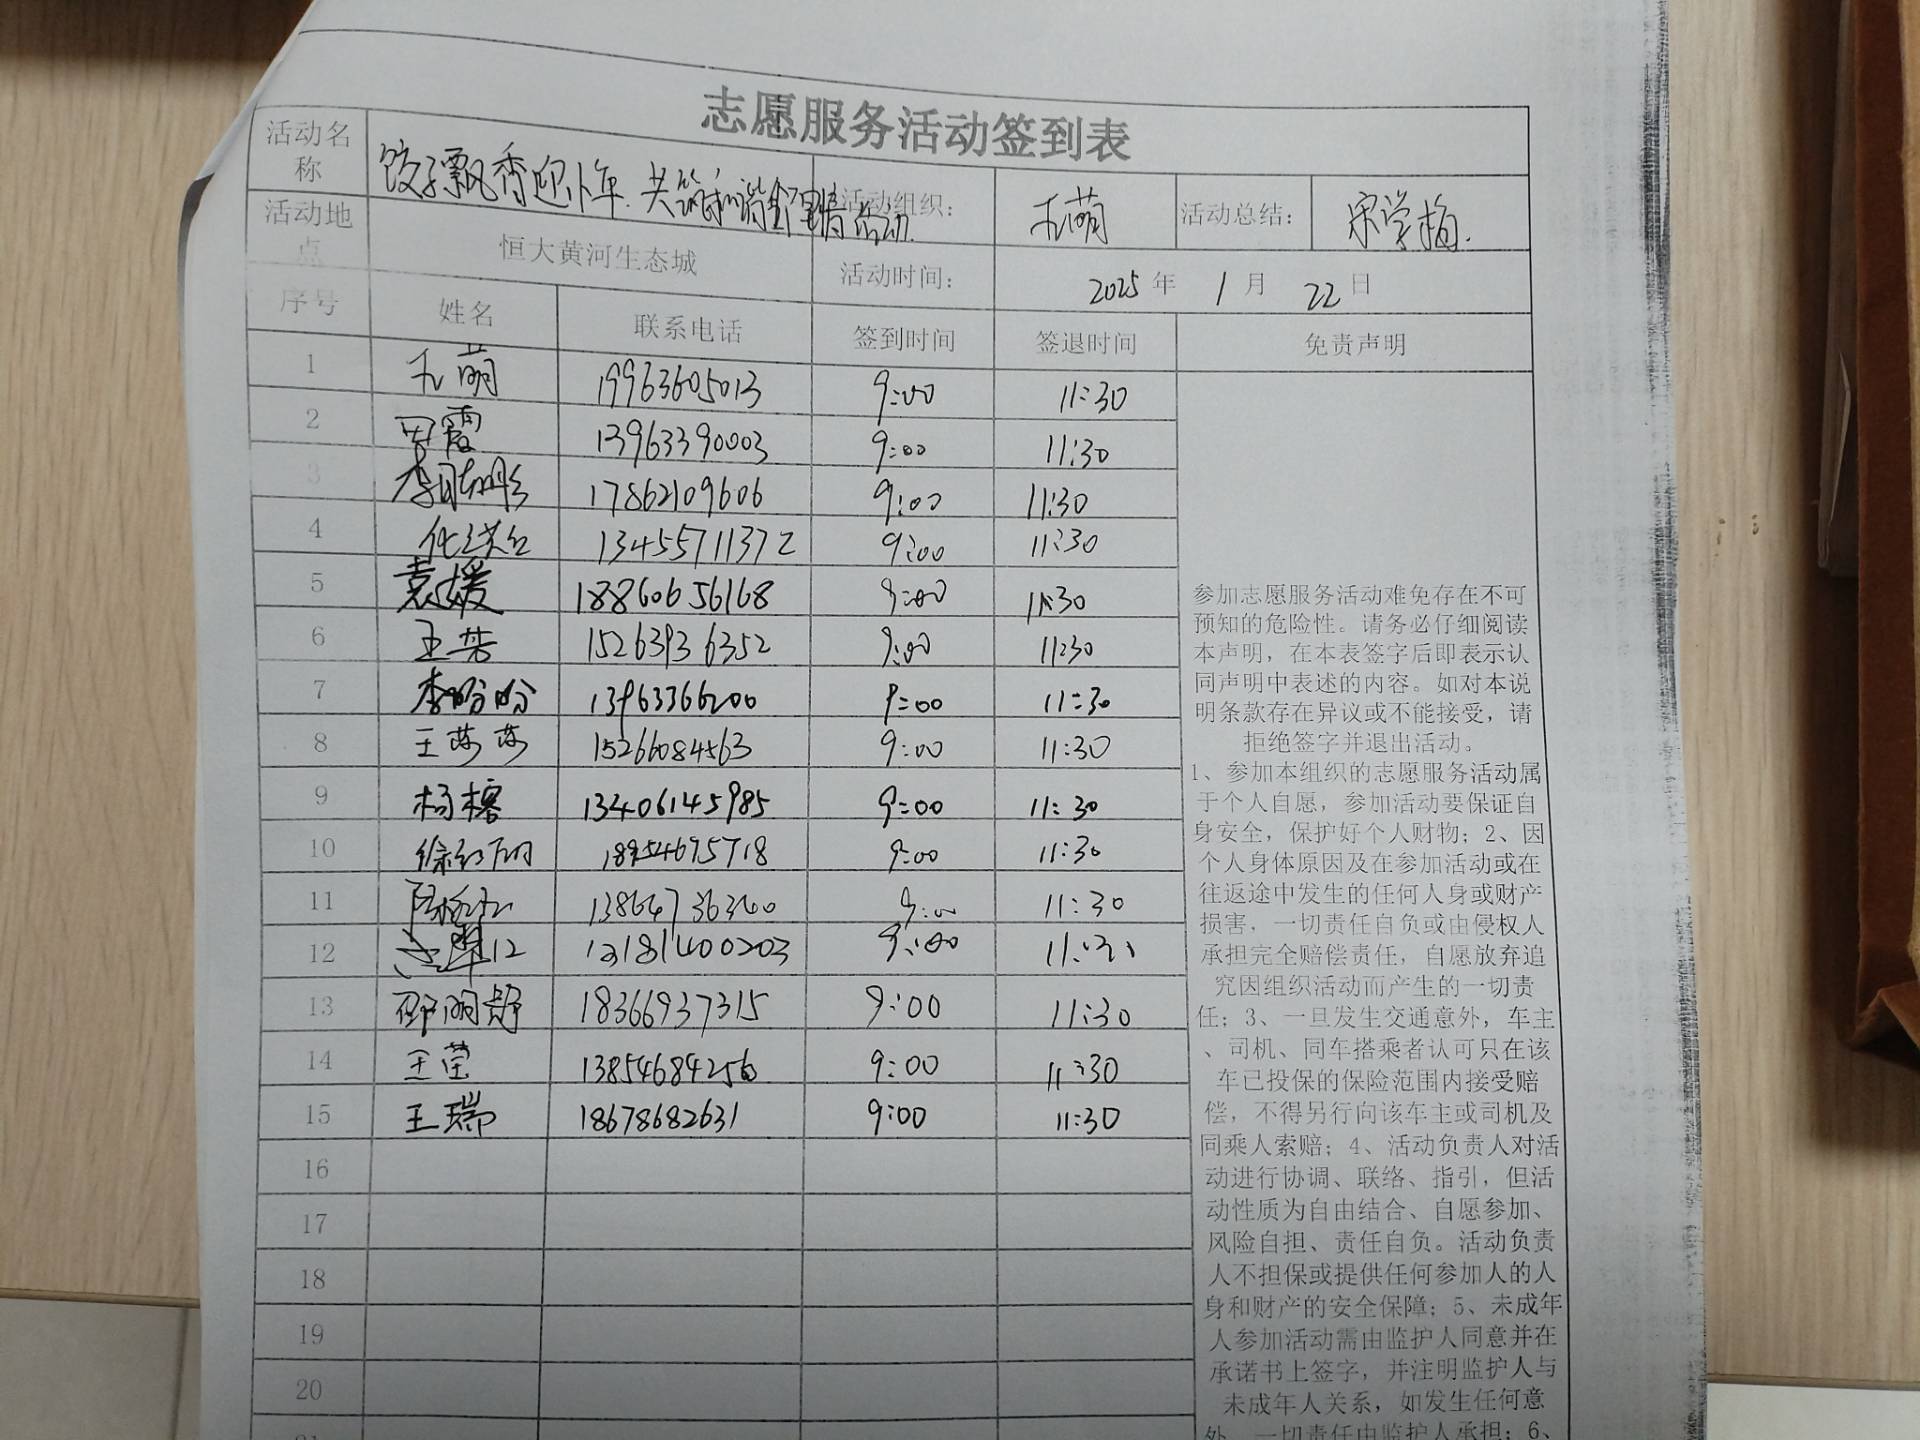 志愿服务活动签到表
活动名称 饺子飘香迎小年 共筑和谐邻里情活动 活动组织： 尤萌 活动总结： 宋学梅
活动地点 恒大黄河生态城 活动时间： 2025年 1月 22日
序号 姓名 联系电话 签到时间 签退时间 免责声明
1 尤萌 19963605013 9:00 11:30
2 田霞 13963390003 9:00 11:30
3 17862109606 9:00 11:30
4 13455711372 9:00 11:30
5 袁媛 18860656168 9:00 11:30
6 王芳 15263936352 9:00 11:30
7 李盼盼 13963366200 9:00 11:30
8 王莎莎 15266084563 9:00 11:30
9 杨榕 13406145985 9:00 11:30
10 9:00 11:30
11 13864736360 9:00 11:30
12 13181400203 9:00 11:30
13 邵明静 18366937315 9:00 11:30
14 王莹 13854684256 9:00 11:30
15 王瑞 18678682631 9:00 11:30
16
17
18
19
20
21
参加志愿服务活动难免存在不可
预知的危险性。请务必仔细阅读
本声明，在本表签字后即表示认
同声明中表述的内容。如对本说
明条款存在异议或不能接受，请
拒绝签字并退出活动。
1、参加本组织的志愿服务活动属
于个人自愿，参加活动要保证自
身安全，保护好个人财物；2、因
个人身体原因及在参加活动或在
往返途中发生的任何人身或财产
损害，一切责任自负或由侵权人
承担完全赔偿责任，自愿放弃追
究因组织活动而产生的一切责
任；3、一旦发生交通意外，车主
、司机、同车搭乘者认可只在该
车已投保的保险范围内接受赔
偿，不得另行向该车主或司机及
同乘人索赔；4、活动负责人对活
动进行协调、联络、指引，但活
动性质为自由结合、自愿参加、
风险自担、责任自负。活动负责
人不担保或提供任何参加人的人
身和财产的安全保障；5、未成年
人参加活动需由监护人同意并在
承诺书上签字，并注明监护人与
未成年人关系，如发生任何意
外，一切责任由监护人承担；6、